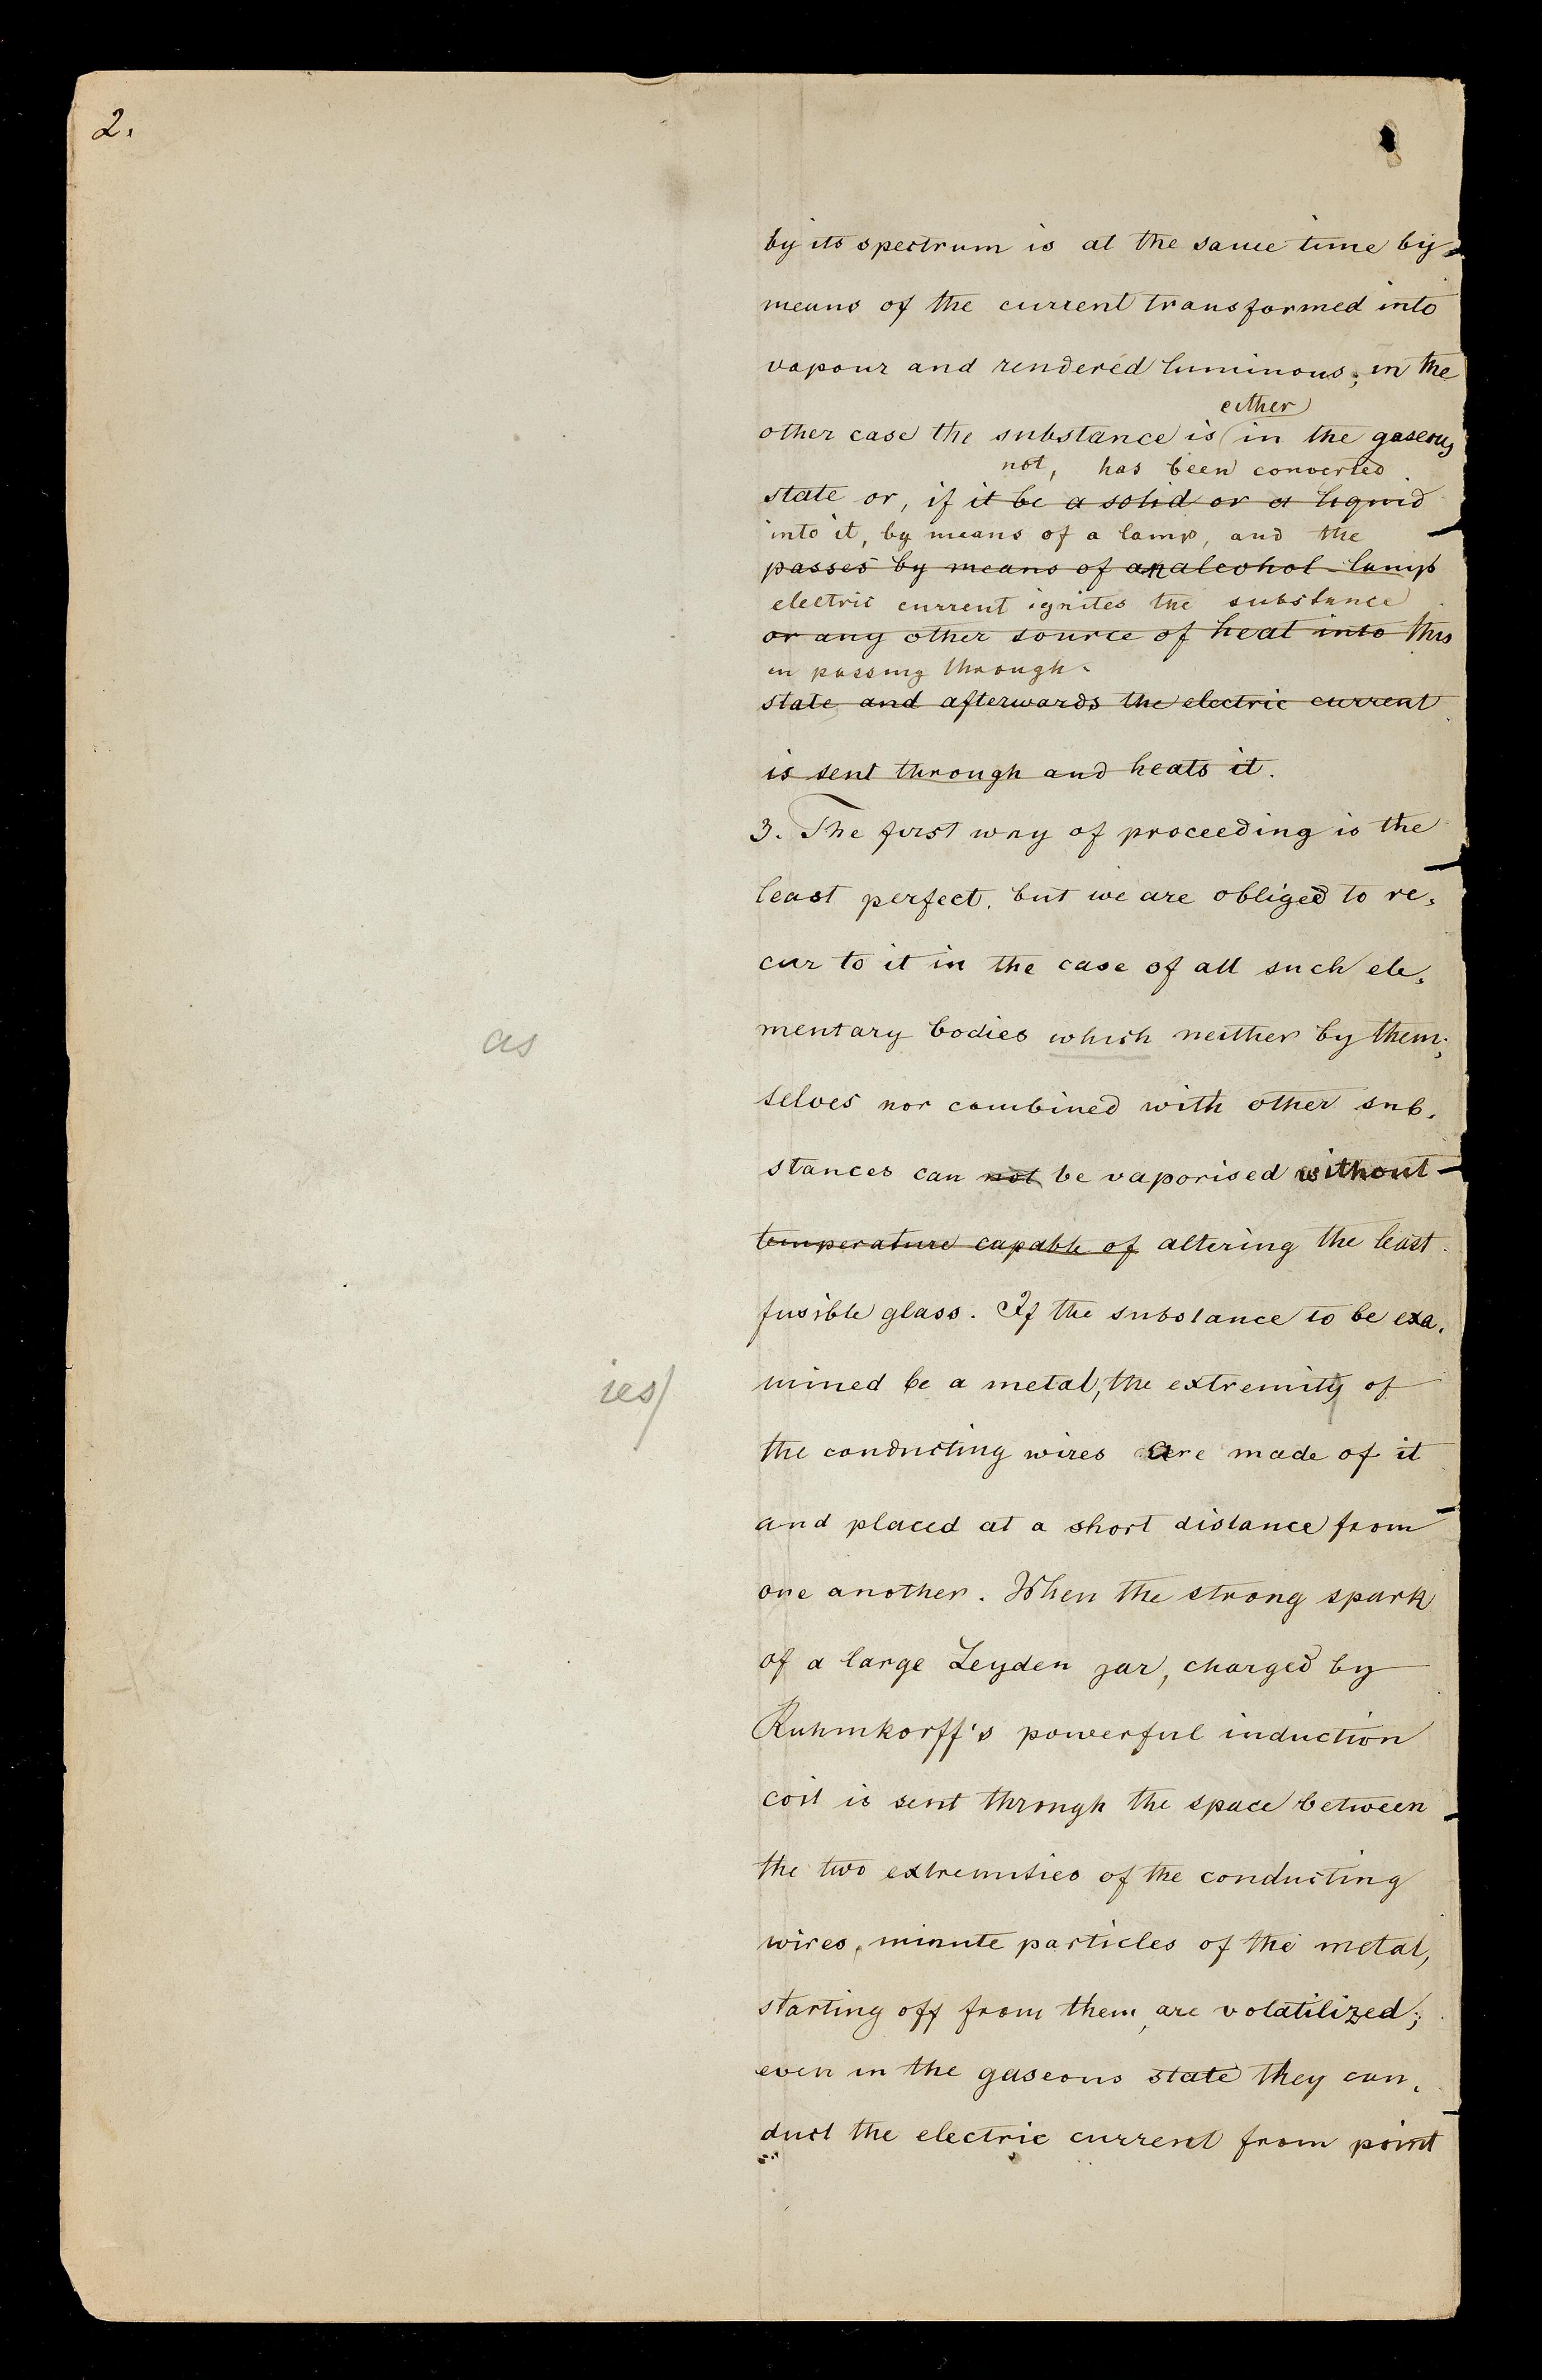 2.
by its spectrum is at the same time by
means of the current transformed into
vapour and rendered luminous; in the
either
other case the substance is in the gaseous
not, has been converted
state or, if it be a solid or a liquid
into it, by means of a lamp, and the
passes by means of an alcohol lamp
electric current ignites the substance
or any other source of heat into this
in passing through.
state and afterwards the electric current
is sent through and heats it.
3. The first way of proceeding is the
least perfect, but we are obliged to re-
cur to it in the case of all such ele-
as
mentary bodies which neither by them-
selves nor combined with other sub-
stances can not be vaporised without
temperature capable of altering the least
fusible glass. If the substance to be exa-
ies/
mined be a metal, the extremity of
the conducting wires are made of it
and placed at a short distance from
one another. When the strong spark
of a large Leyden jar, charged by
Ruhmkorff's powerful induction
coil is sent through the space between
the two extremities of the conducting
wires, minute particles of the metal,
starting off from them, are volatilized;
even in the gaseous state they con-
duct the electric current from point